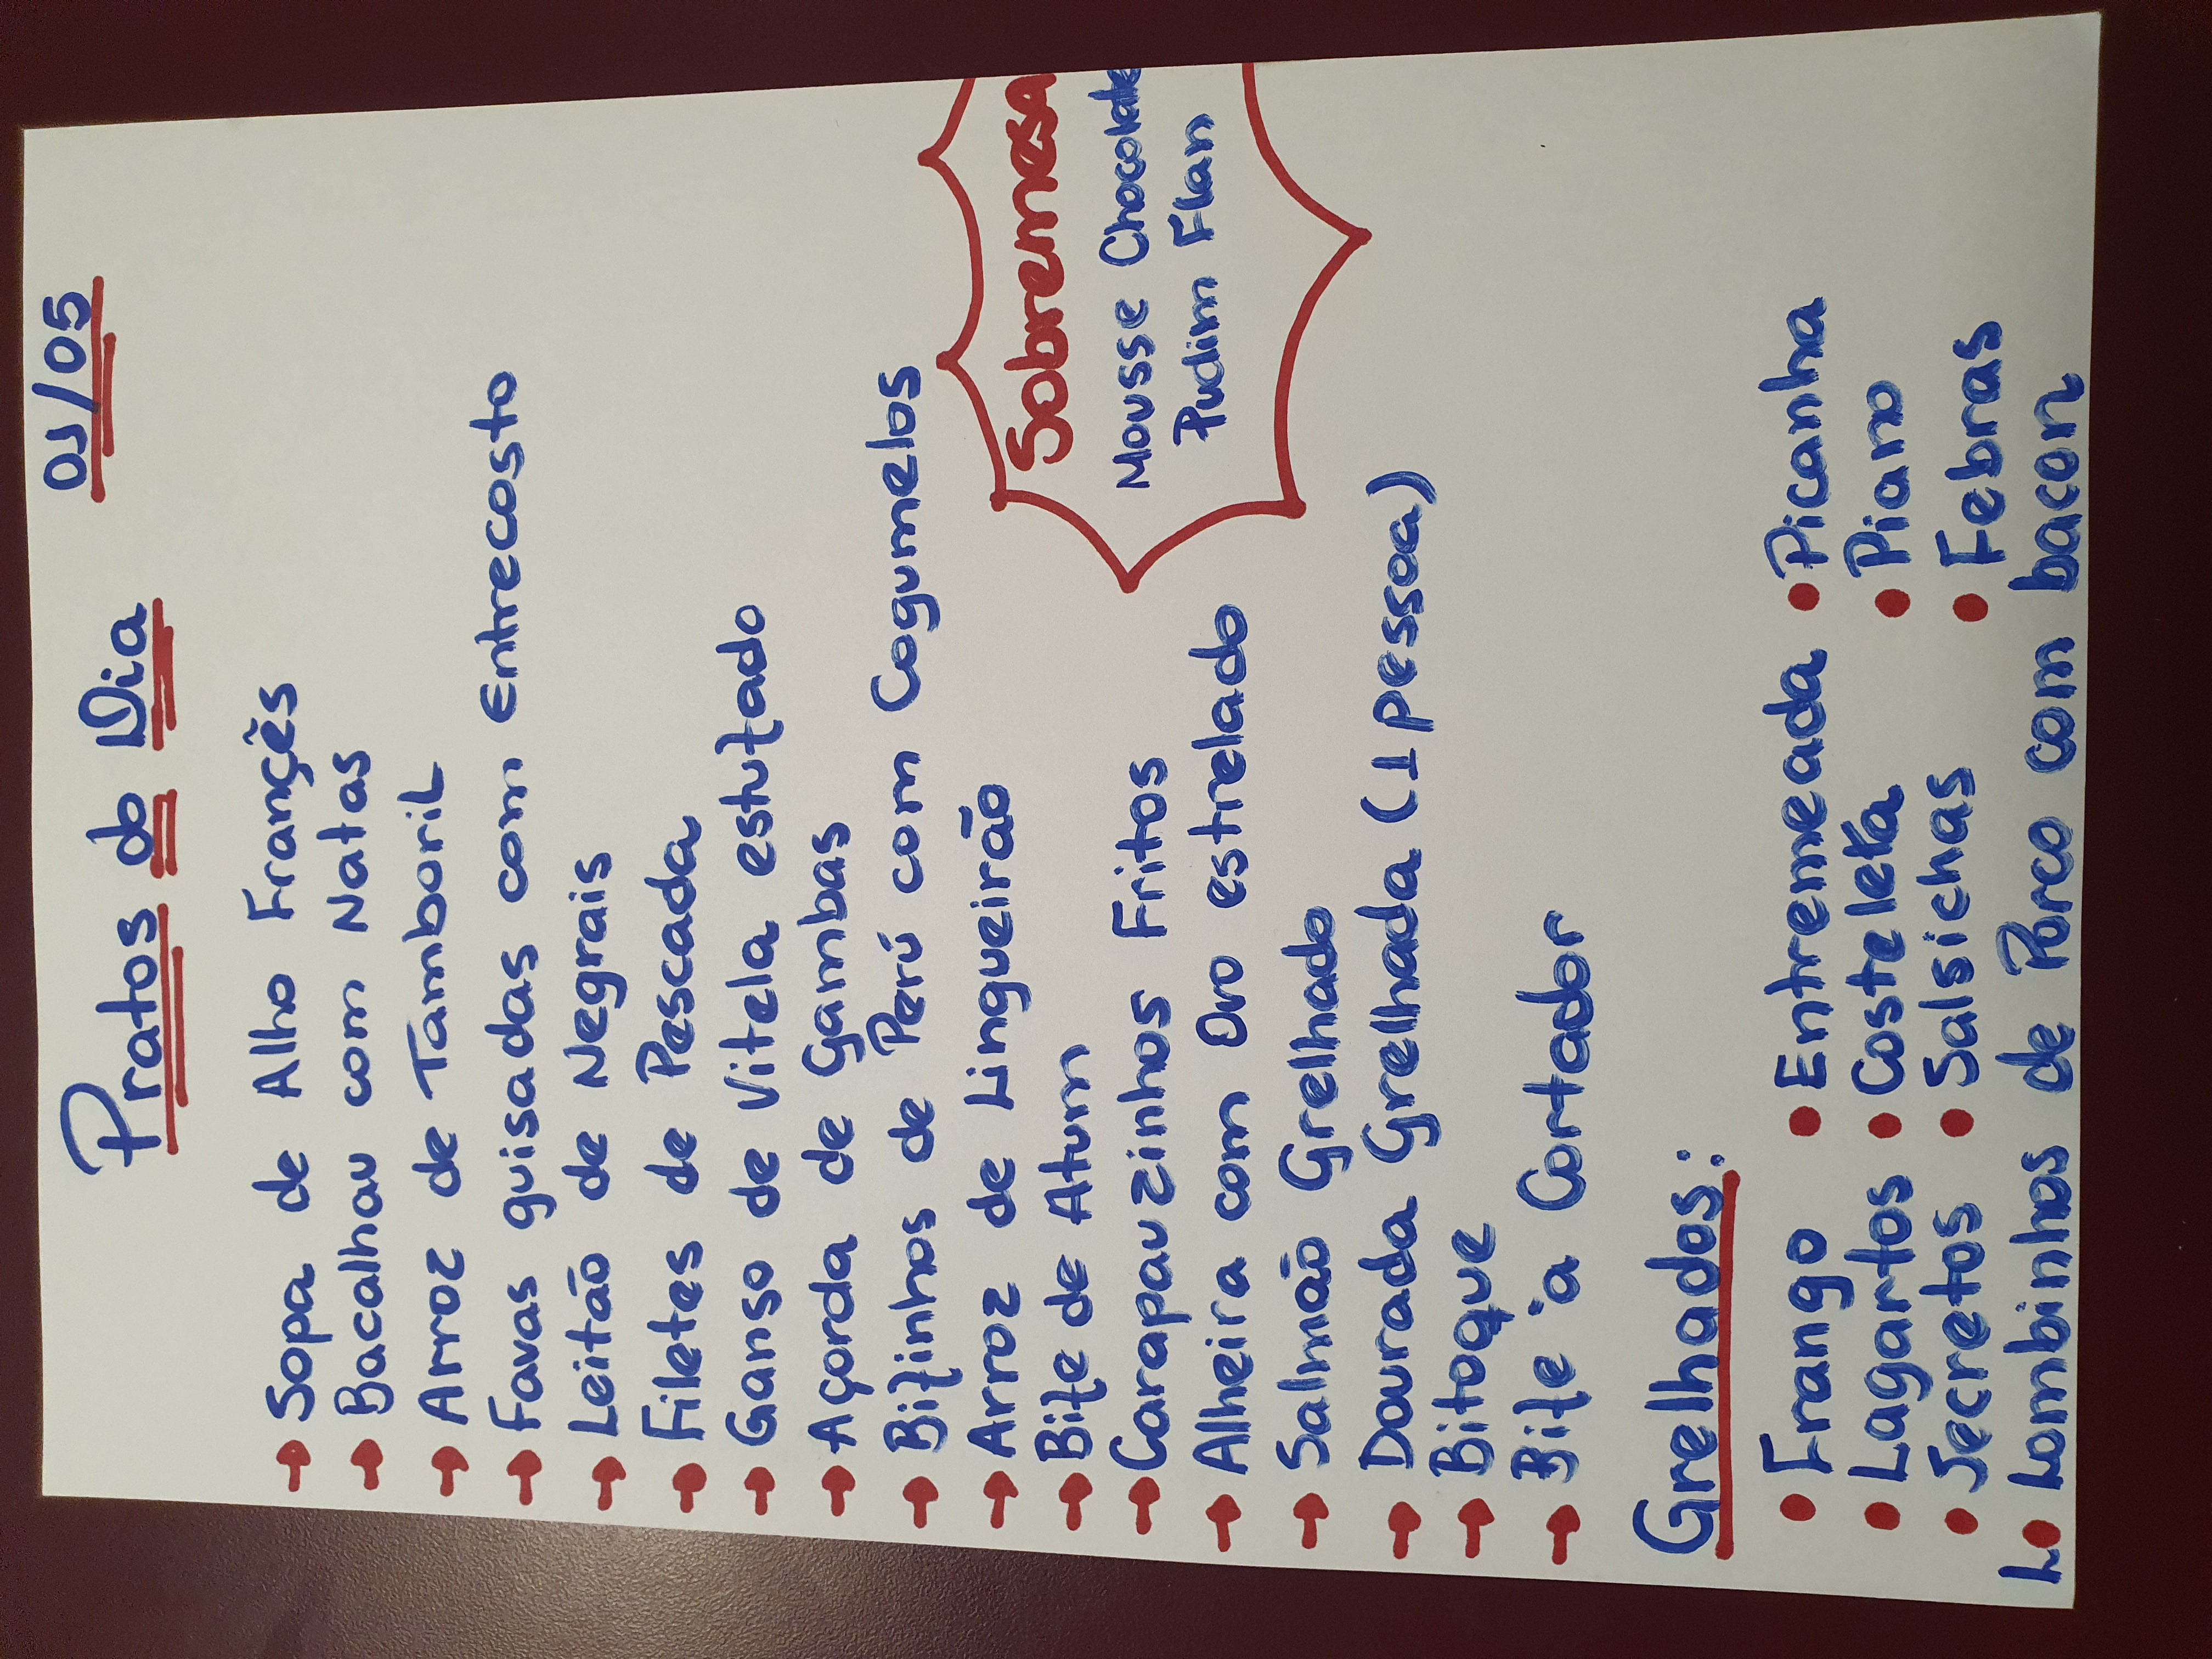 Pratos do Dia 01/05
Sopa de Alho Françês
Bacalhau com Natas
Arroz de Tamboril
Favas guisadas com Entrecosto
Leitão de Negrais
Filetes de Pescada
Ganso de Vitela estufado
Açorda de Gambas
Bifinhos de Perú com Cogumelos
Arroz de Lingueirão
Bife de Atum
Carapauzinhos Fritos
Alheira com Ovo estrelado
Salmão Grelhado
Dourada Grelhada (1 pessoa)
Bitoque
Bife à Cortador
Sobremesa
Mousse Chocolate
Pudim Flan
Grelhados:
• Frango • Entremeada • Picanha
• Lagartos • Costeleta • Piano
• Secretos • Salsichas • Febras
• Lombinhos de Porco com bacon